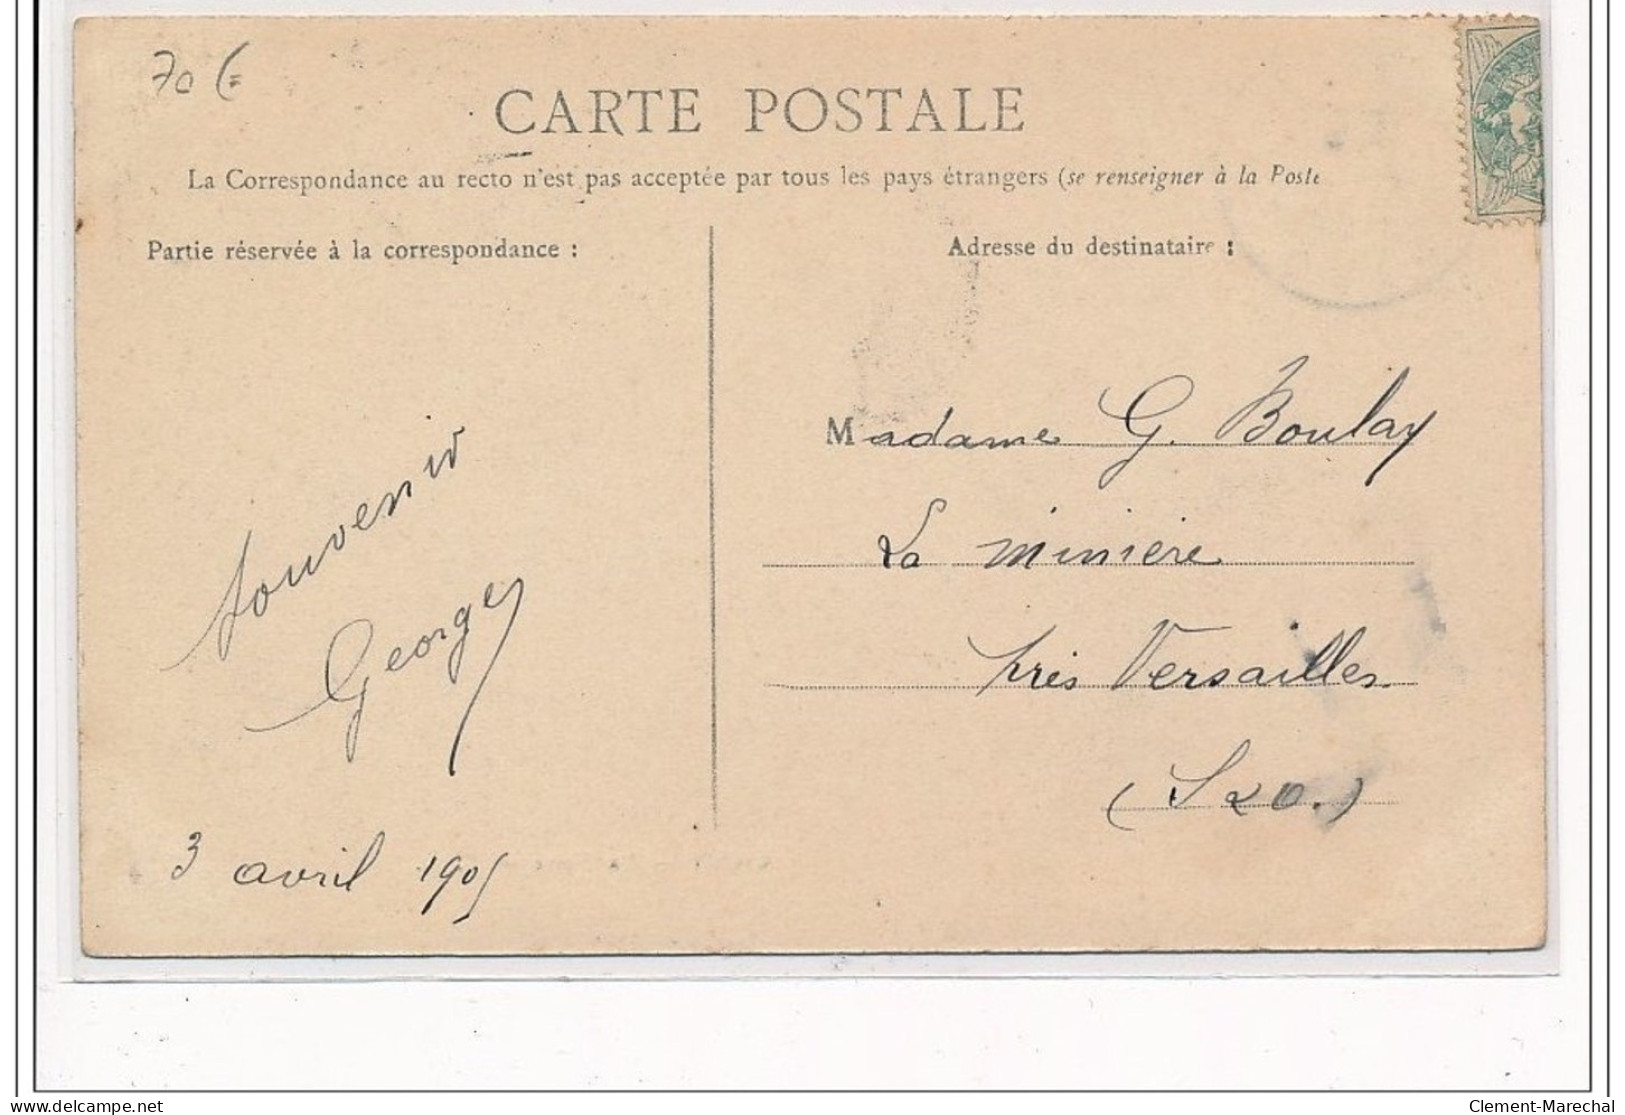 70 €
CARTE POSTALE
La Correspondance au recto n'est pas acceptée par tous les pays étrangers (se renseigner à la Poste
Partie réservée à la correspondance :
Adresse du destinataire :
Souvenir
Georges
3 avril 1905
Madame G. Boulay
La minière
près Versailles
(S & O.)
Clement-Marechal